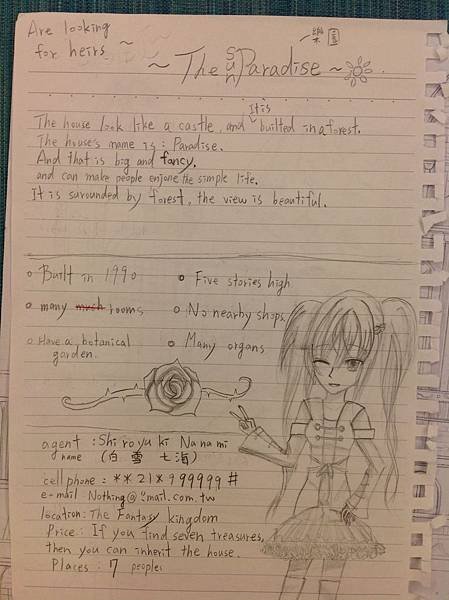 Are looking
for heirs ~
樂園
~ The Sun Paradise ~
The house look like a castle, and It is builted in a forest.
The house's name is : Paradise.
And that is big and fancy,
and can make people enjone the simple life.
It is surounded by forest, the view is beautiful.
Built in 1990
Five stories high
many much rooms
No nearby shops
Have a botanical
garden.
Many organs
agent : Shiroyuki Nanami
name (白雪七海)
cellphone : **21*999999#
e-mail Nothing@ mail.com.tw
location: The Fantasy kingdom
Price : If you find seven treasures,
then you can inherit the house.
Places : 7 people